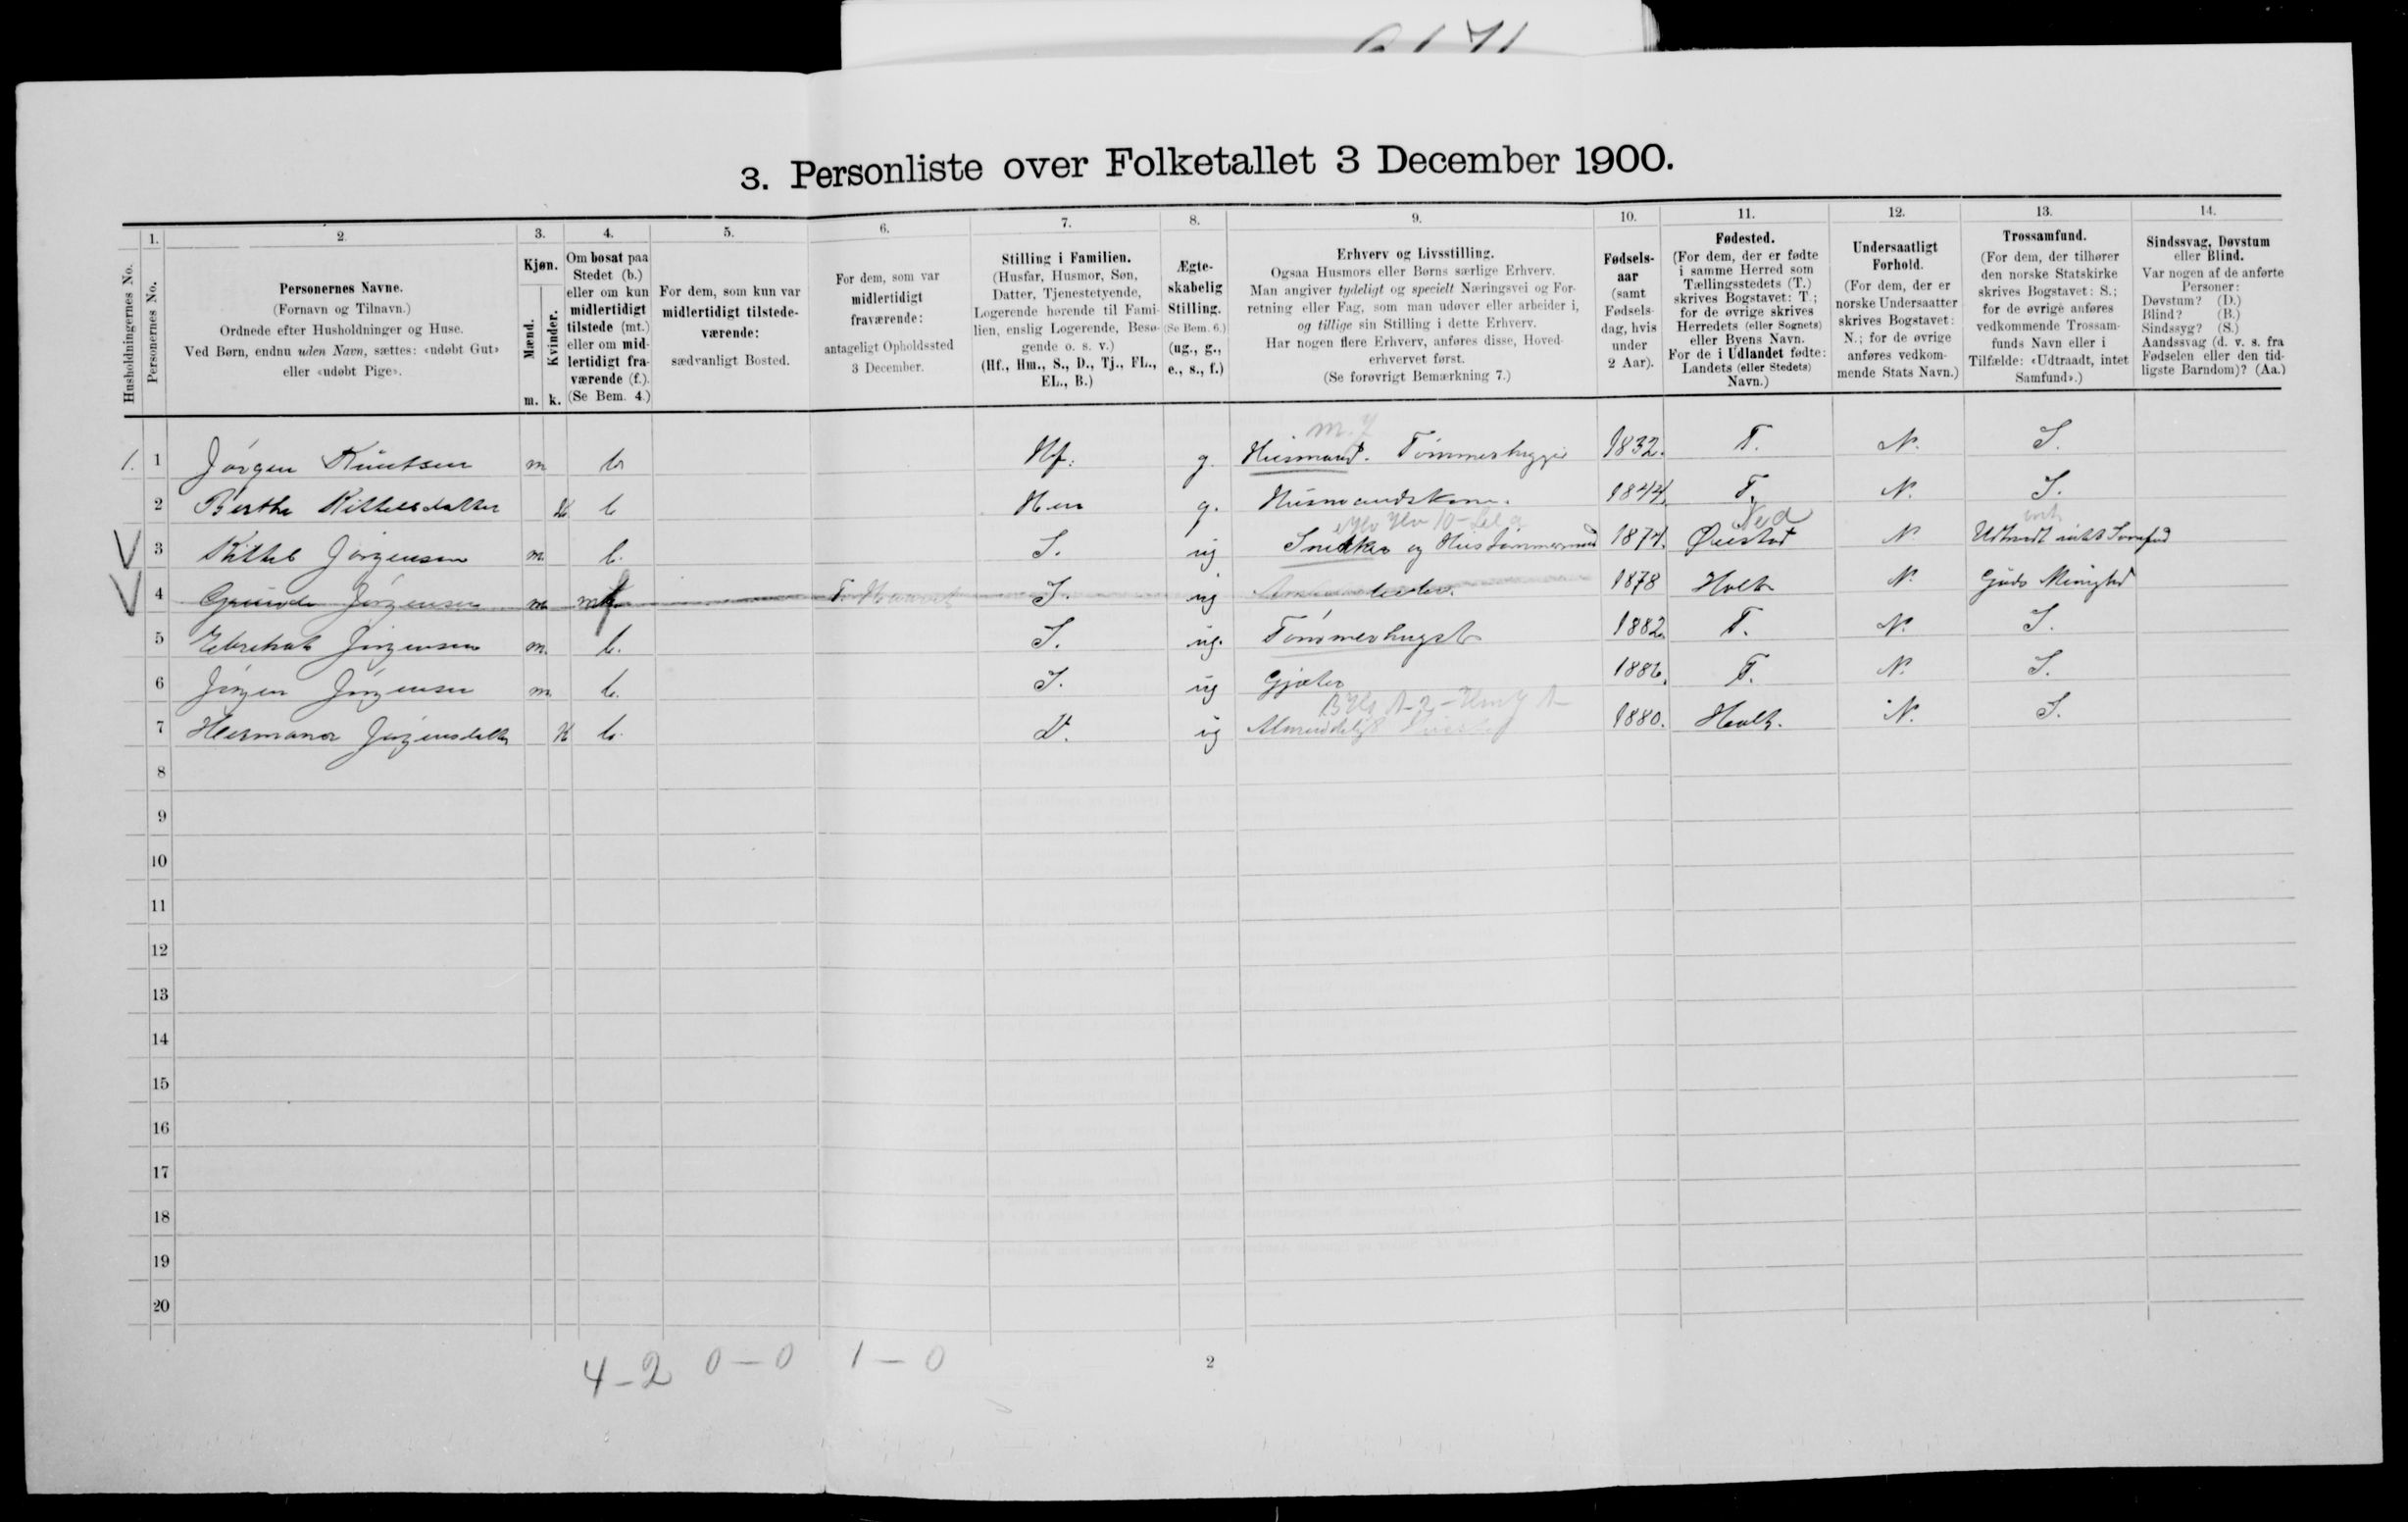 3. Personliste over Folketallet 3 December 1900.
1. 2. 3. 4. 5. 6. 7. 8. 9. 10. 11. 12. 13. 14.
Husholdningernes No.
Personernes No.
Personernes Navne.
(Fornavn og Tilnavn.)
Ordnede efter Husholdninger og Huse.
Ved Børn, endnu uden Navn, sættes: «udøbt Gut»
eller «udøbt Pige».
Kjøn.
Mænd.
Kvinder.
m. k.
Om bosat paa
Stedet (b.)
eller om kun
midlertidigt
tilstede (mt.)
eller om mid-
lertidigt fra-
værende (f.).
(Se Bem. 4.)
For dem, som kun var
midlertidigt tilstede-
værende:
sædvanligt Bosted.
For dem, som var
midlertidigt
fraværende:
antageligt Opholdssted
3 December.
Stilling i Familien.
(Husfar, Husmor, Søn,
Datter, Tjenestetyende,
Logerende hørende til Fami-
lien, enslig Logerende, Besø-
gende o. s. v.)
(Hf., Hm., S., D., Tj., FL.,
EL., B.)
Ægte-
skabelig
Stilling.
(Se Bem. 6.)
(ug., g.,
e., s., f.)
Erhverv og Livsstilling.
Ogsaa Husmors eller Børns særlige Erhverv.
Man angiver tydeligt og specielt Næringsvei og For-
retning eller Fag, som man udøver eller arbeider i,
og tillige sin Stilling i dette Erhverv.
Har nogen flere Erhverv, anføres disse, Hoved-
erhvervet først.
(Se forøvrigt Bemærkning 7.)
Fødsels-
aar
(samt
Fødsels-
dag, hvis
under
2 Aar).
Fødested.
(For dem, der er fødte
i samme Herred som
Tællingsstedets (T.)
skrives Bogstavet: T.;
for de øvrige skrives
Herredets (eller Sognets)
eller Byens Navn.
For de i Udlandet fødte:
Landets (eller Stedets)
Navn.)
Undersaatligt
Forhold.
(For dem, der er
norske Undersaatter
skrives Bogstavet:
N.; for de øvrige
anføres vedkom-
mende Stats Navn.)
Trossamfund.
(For dem, der tilhører
den norske Statskirke
skrives Bogstavet: S.;
for de øvrige anføres
vedkommende Trossam-
funds Navn eller i
Tilfælde: «Udtraadt, intet
Samfund».)
Sindssvag, Døvstum
eller Blind.
Var nogen af de anførte
Personer:
Døvstum? (D.)
Blind? (B.)
Sindssyg? (S.)
Aandssvag (d. v. s. fra
Fødselen eller den tid-
ligste Barndom)? (Aa.)
1. 1 Jørgen Knutsen m b Hf. g. Husmand. Tømmerhugger 1832. T. N. S.
2 Berthe Kittelsdatter K b Hm g. Husmandskone. 1844. T. N. S.
3 Kittel Jørgensen m. b. S. ug Snedker og Hustømmermand 1874. Øiestad N Udtraadt intet Samfund
4 Jørgensen m S. ug 1878 Holt N. Guds Menighed
5 Jørgensen m. b. S. ug. Tømmerhugst 1882. T. N. S.
6 Jørgen Jørgensen m b. S. ug Gjæter 1886. T. N. S.
7 Hermana Jørgensdatter K b. D. ug 1880. Holt. N. S.
8
9
10
11
12
13
14
15
16
17
18
19
20
4-2 0-0 1-0
2